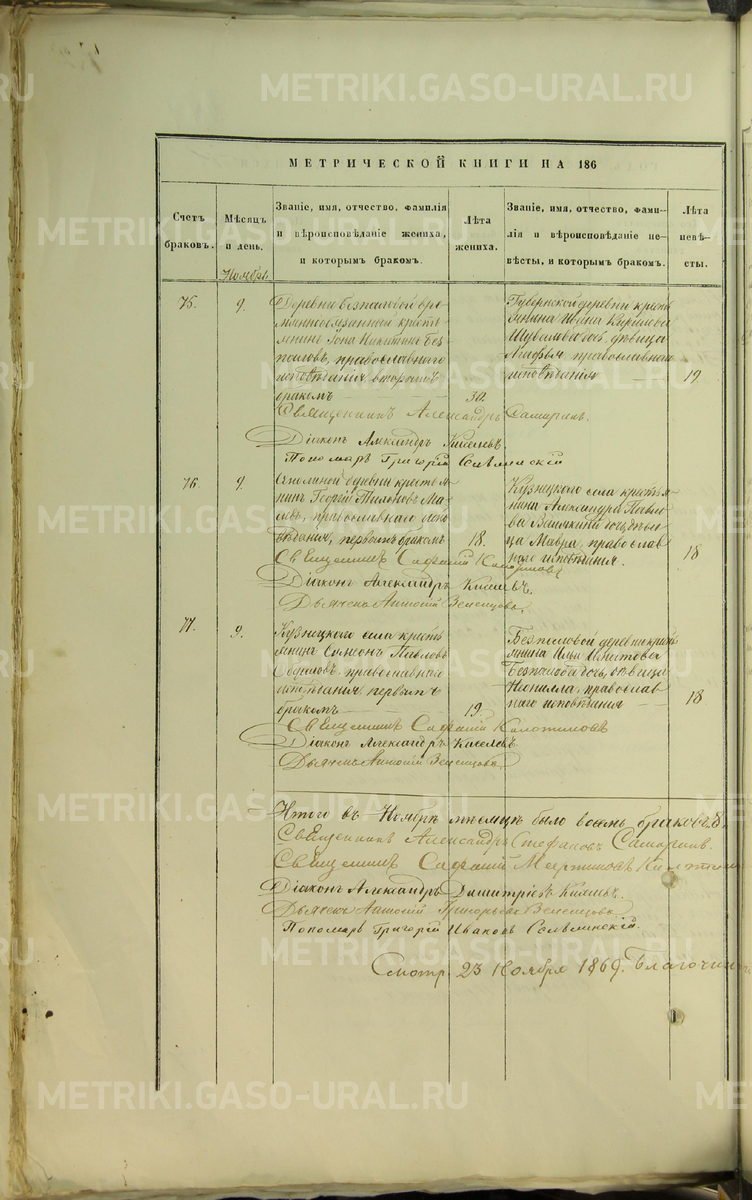 METRIKI.GASO-URAL.RU
МЕТРИЧЕСКОЙ КНИГИ НА 186
Счетъ браковъ.
Мѣсяцъ и день.
Званіе, имя, отчество, фамилія
и вѣроисповѣданіе жениха,
и которымъ бракомъ.
Лѣта жениха.
Званіе, имя, отчество, фами-
лія и вѣроисповѣданіе не-
вѣсты, и которымъ бракомъ.
Лѣта невѣ-
сты.
Ноябрь
75.
9.
Деревни Безпаловой вре-
меннообязанный кресть
янинъ Іона Никитинъ Без
паловъ, православнаго
исповѣданія вторымъ
бракомъ
30.
Губернской деревни крестъ
янина Ивана Кирилова
Шувалова дочь дѣвица
Агафья православнаго
исповѣданія
19
Священникъ Александръ
Діаконъ Александръ Киселевъ.
Пономарь Григорій
76.
9.
деревни крестья
нинъ Георгій
православнаго испо
вѣданія, первымъ бракомъ
18.
Кузнецкого села крестья
нина Александра Павло
ва дочь дѣви
ца Мавра, православ
наго исповѣданія.
18
Священникъ
Діаконъ Александръ Киселевъ.
Дьячекъ Антоній
77.
9.
Кузнецкого села кресть
янинъ Самсонъ Павловъ
православнаго
исповѣданія, первымъ
бракомъ
19
Безпаловой деревни кресть
янина
Безпалова дочь, дѣвица
Неонилла, православ
наго исповѣданія
18
Священникъ
Діаконъ Александръ Киселевъ
Дьячекъ Антоній
Итого въ Ноябрѣ мѣсяцѣ было восемь браковъ 8.
Священникъ Александръ Стефановъ
Священникъ
Діаконъ Александръ Димитріевъ Киселевъ.
Дьячекъ Антоній Григорьевъ
Пономарь Григорій Ивановъ
Смотр. 23 Ноября 1869. Благочин